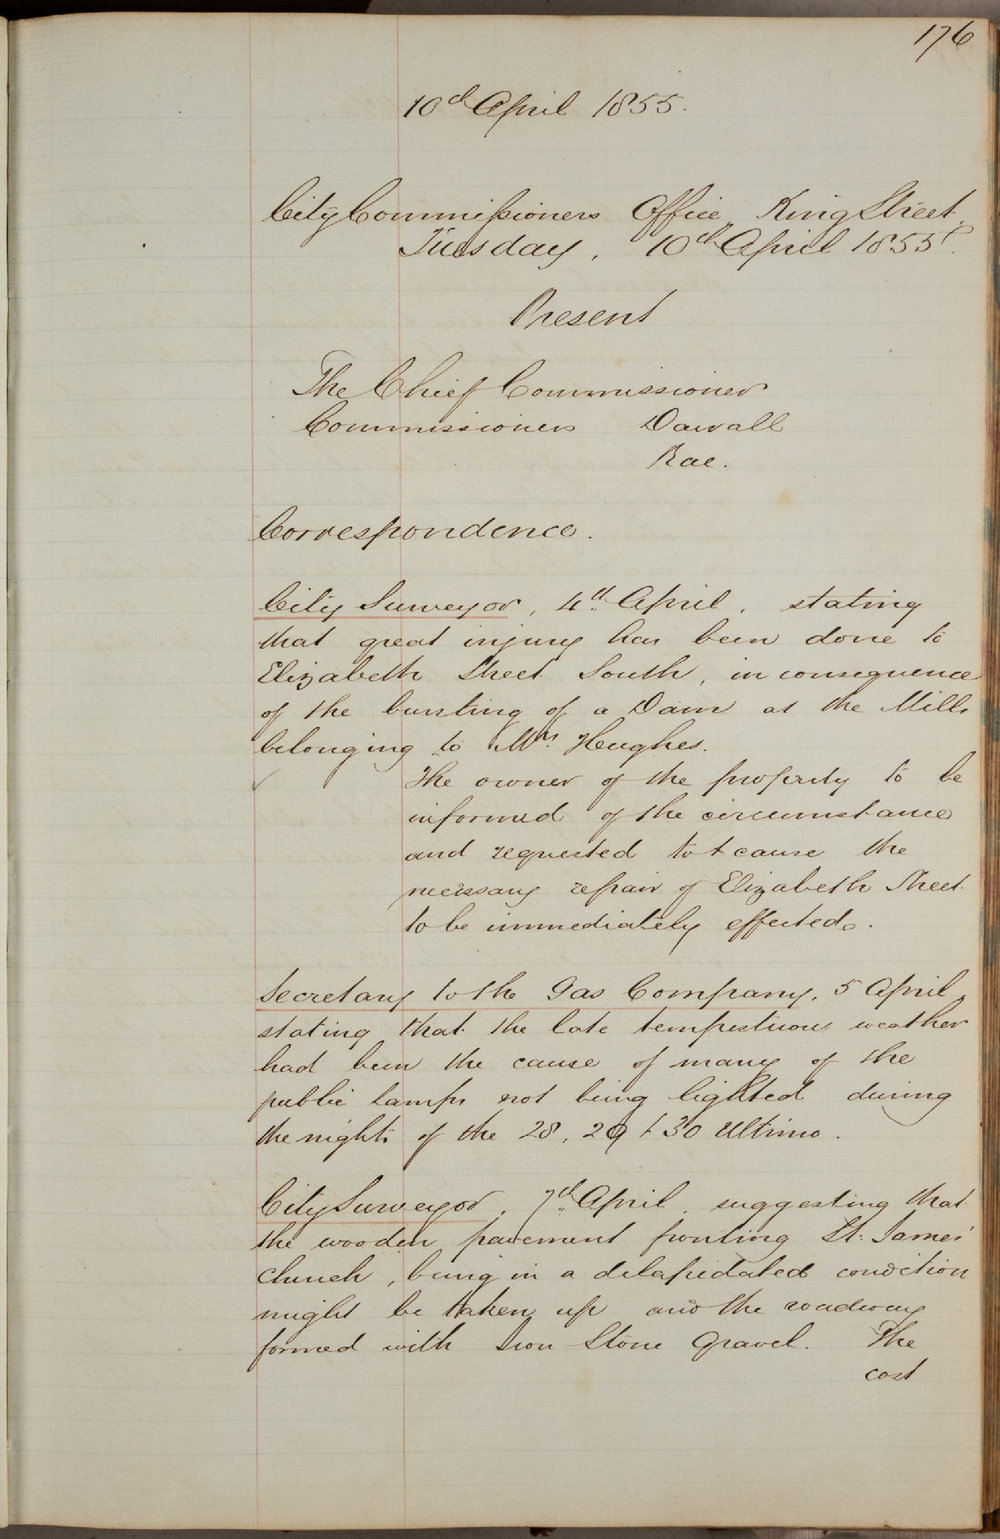 176
10th April 1855.
City Commissioners Office, King Street.
Tuesday, 10th April 1855.
Present
The Chief Commissioner
Commissioners Darvall
Rae.
Correspondence.
City Surveyor, 4th April, stating
that great injury has been done to
Elizabeth Street South, in consequence
of the bursting of a Dam at the Mills
belonging to Mrs. Hughes.
The owner of the property to be
informed of the circumstance
and requested to cause the
necessary repair of Elizabeth Street
to be immediately effected.
Secretary to the Gas Company, 5 April
stating that the late tempestuous weather
had been the cause of many of the
public lamps not being lighted during
the nights of the 28, 29 & 30 Ultimo.
City Surveyor, 7th April, suggesting that
the wooden pavement fronting St. James'
Church, being in a delapidated condition
might be taken up and the roadway
formed with Iron Stone Gravel. The
cost